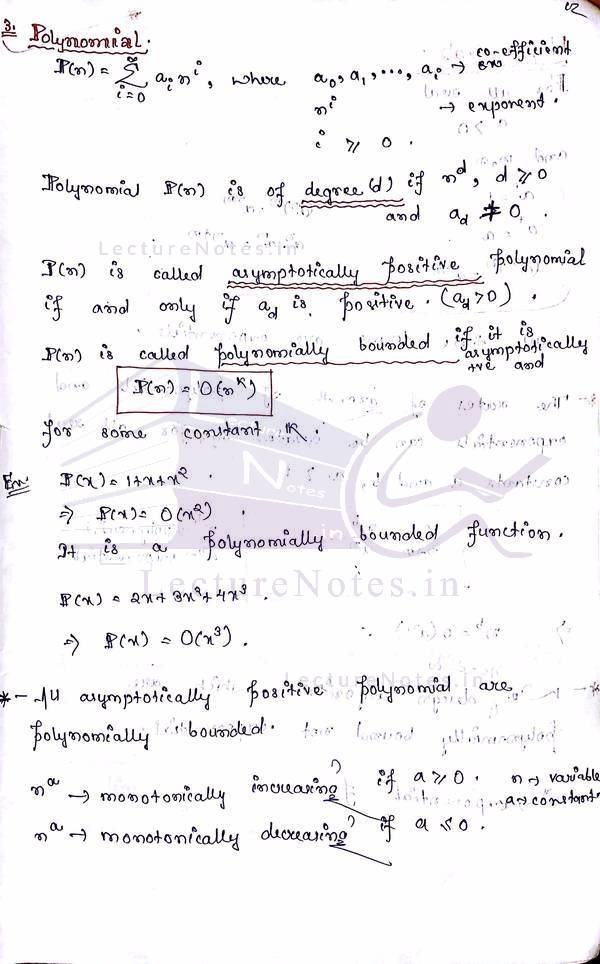 12
3. Polynomial.
P(n) = ∑ᵢ₌₀ aᵢ nⁱ, where a₀, a₁, ..., aᵢ → co-efficient
nⁱ → exponent.
i ≥ 0.
Polynomial P(n) is of degree (d) if n^d, d ≥ 0
and a_d ≠ 0.
LectureNotes.in
P(n) is called asymptotically positive polynomial
if and only if a_d is positive. (a_d > 0).
P(n) is called polynomially bounded, if it is
asymptotically
+ve and
P(n) = O(n^K)
for some constant K.
Notes
in
Ex P(x) = 1+x+x²
⇒ P(x) = O(x²).
It is a polynomially bounded function.
LectureNotes.in
P(x) = 2x+3x²+4x³.
⇒ P(x) = O(x³).
LectureNotes.in
* - All asymptotically positive polynomial are
polynomially bounded.
n^a → monotonically increasing if a ≥ 0. n → variable
a → constant
n^a → monotonically decreasing if a ≤ 0.